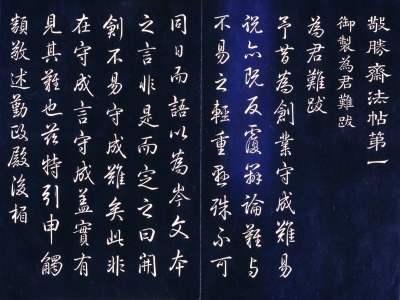 敬勝齋法帖第一
御製為君難跋
為君難跋
予昔為創業守成難易
說亦既反覆辯論難与
不易之輕重懸殊不可
同日而語以為岑文本
之言非是而定之曰開
創不易守成難矣此非
在守成言守成蓋實有
見其難也茲特引申觸
類敬述勤政殿後楣